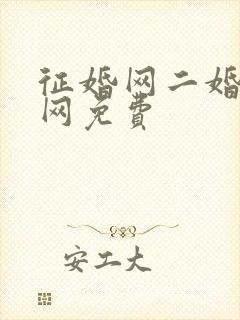 征婚网二婚
网免费
安工大